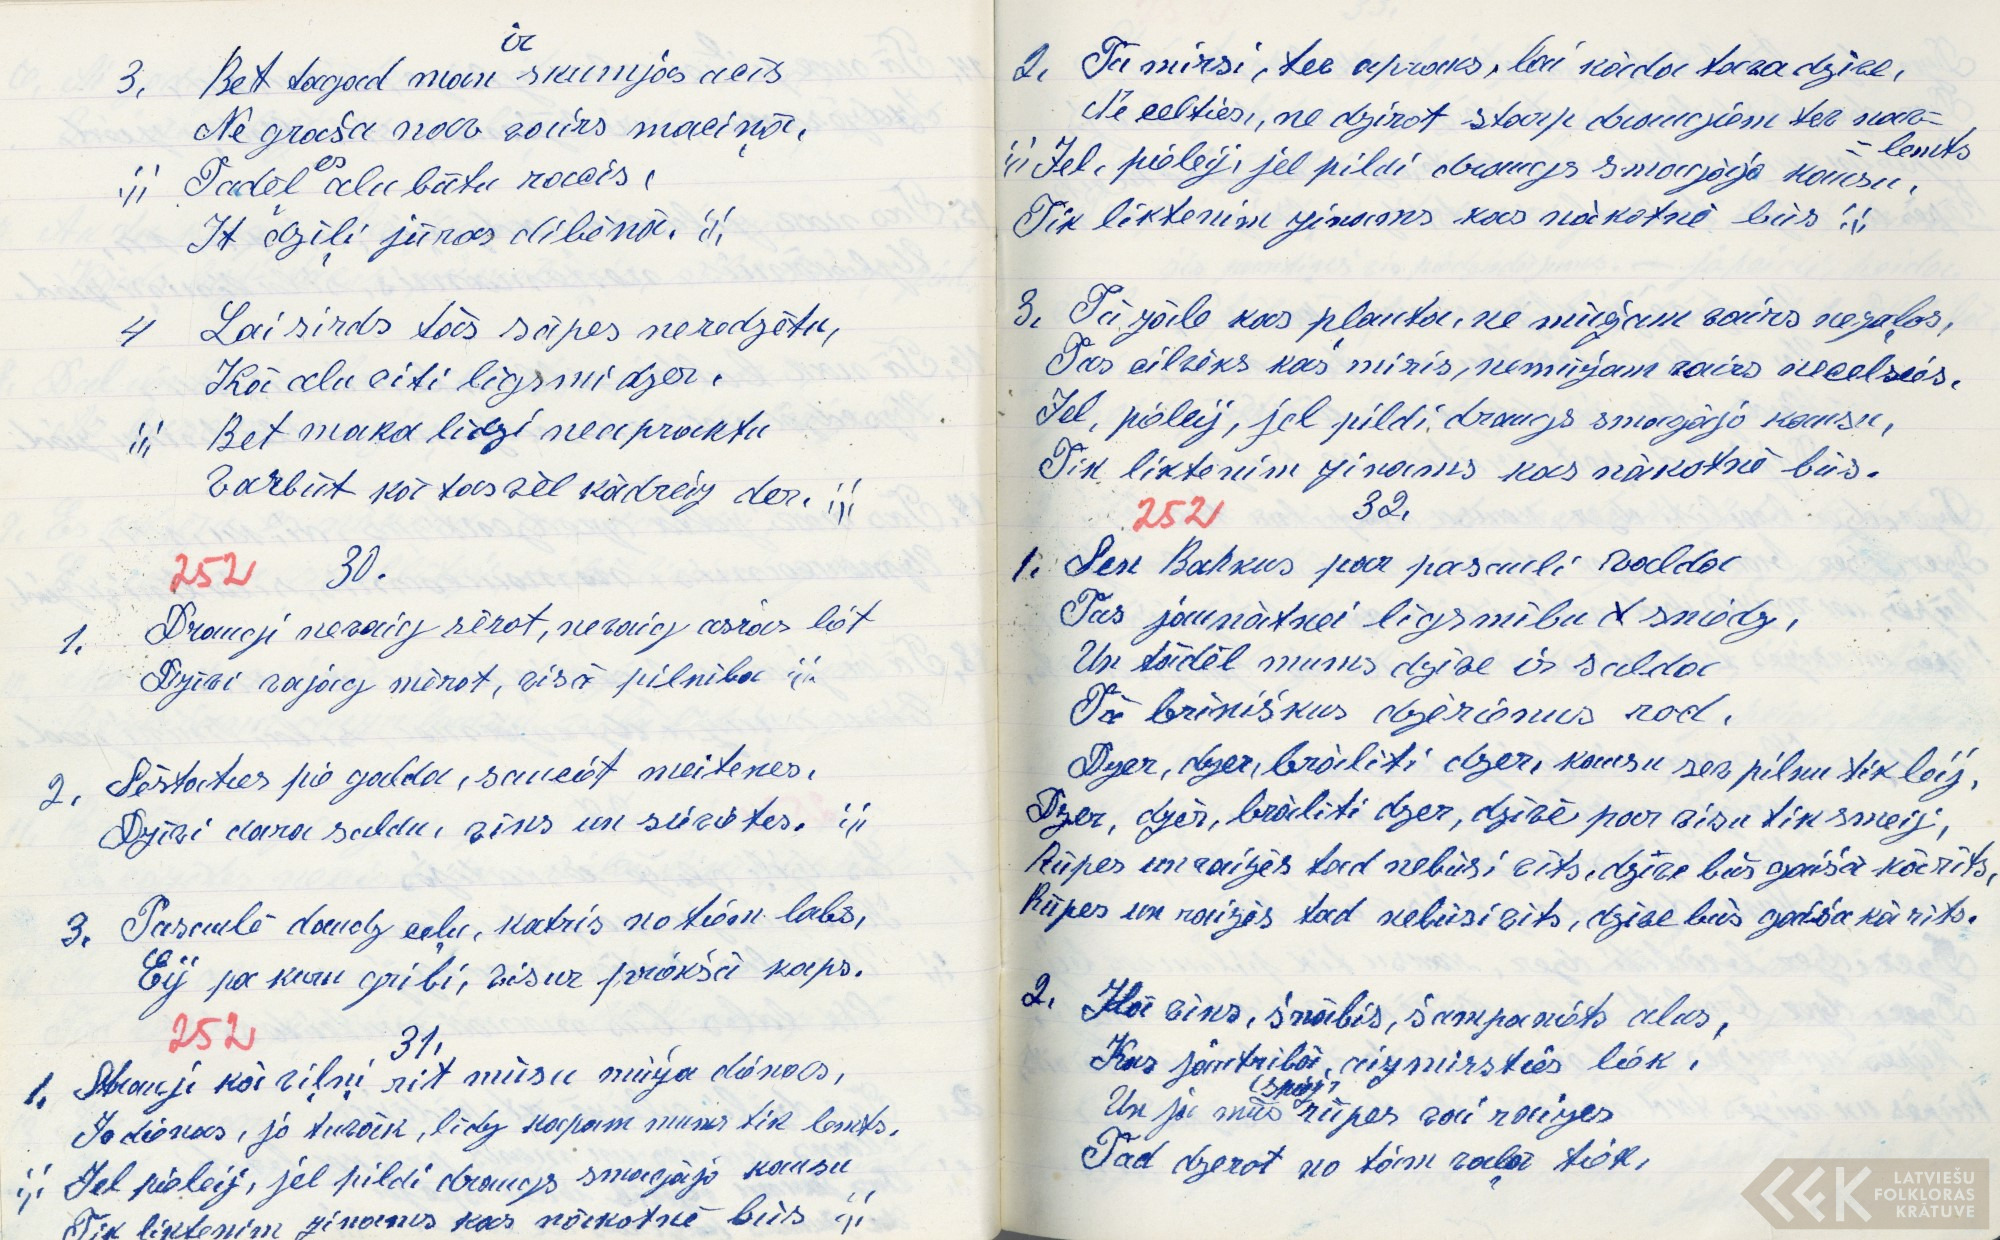 ir
3. Bet tagad man skumjās acis
Ne graša nav vairs maciņā,
;;; Tadēļ es alu būtu racis,
It dziļi jūras dibēnā. ;;;
4 Lai sirds tās sāpes neredzētu,
Kā alu citi līgsmi dzer.
;;; Bet maka līdzi neapraktu
varbūt kā tas vēl kādreiz der. ;;;
252 30.
1. Draugi nevaig sērot, nevaig asrās līt
Dzīvi vajag mērot, visā pilnība ;;;
2. Sēstaties pie galda, sauciet meitenes,
Dzīvi dara saldu, vīns un sievietes. ;;;
3. Pasaulē daudz ceļu, katris no tiem labs,
Eij pa kuru gribi, visur priekšā kaps.
252 31.
1. Draugi kā viļņi rit mūsu mūža dienas,
Jo dienas, jo tuvāk, līdz kapam mums tik lemts.
;;; Jel pieleij, jel pildi draugs smagajo kausu
Tik liktenim zinams kas nākotnē būs ;;;
2. Tu mirsi, tev apraks, lai kāda tava dzīve,
Ne celties, ne dzirot starp draugiem tev nav=
=lemts
;;; Jel, pieleij, jel pildi draugs smagajo kausu,
Tik liktenim zinams kas nākotnē būs ;;;
3. Tā zāle kas plauta, ne mūžam vairs nezaļos,
Tas cilvēks kas miris, nemūžam vairs necelsies.
Jel, pieleij, jel pildi draugs smagajo kausu,
Tik liktenim zinams kas nākotnē būs.
252 32.
1. Sen Bahkus par pasauli valda
Tas jaunātnei līgsmību sniedz,
Un tādēl mums dzīve ir salda
Tā brīnišķus dzērienus rod.
Dzer, dzer, brālīti dzer, kausu sev pilnu tik leij,
Dzer, dzer, brālīti dzer, dzīvē par visu tik smeij,
Rūpes un raizēs tad nebūsi vīts, dzīve būs gaiša kā rīts,
Rūpes un raizēs tad nebūsi vīts, dzīve būs gaiša kā rīts.
2. Kā vīns, šnābis, šampanēts alus,
Kas jautribā, aizmirsties liek,
(spiež)
Un ja mūs rūpes vai raizes
Tad dzerot no tām vaļa tiek.
LATVIEŠU
FOLKLORAS
KRĀTUVE